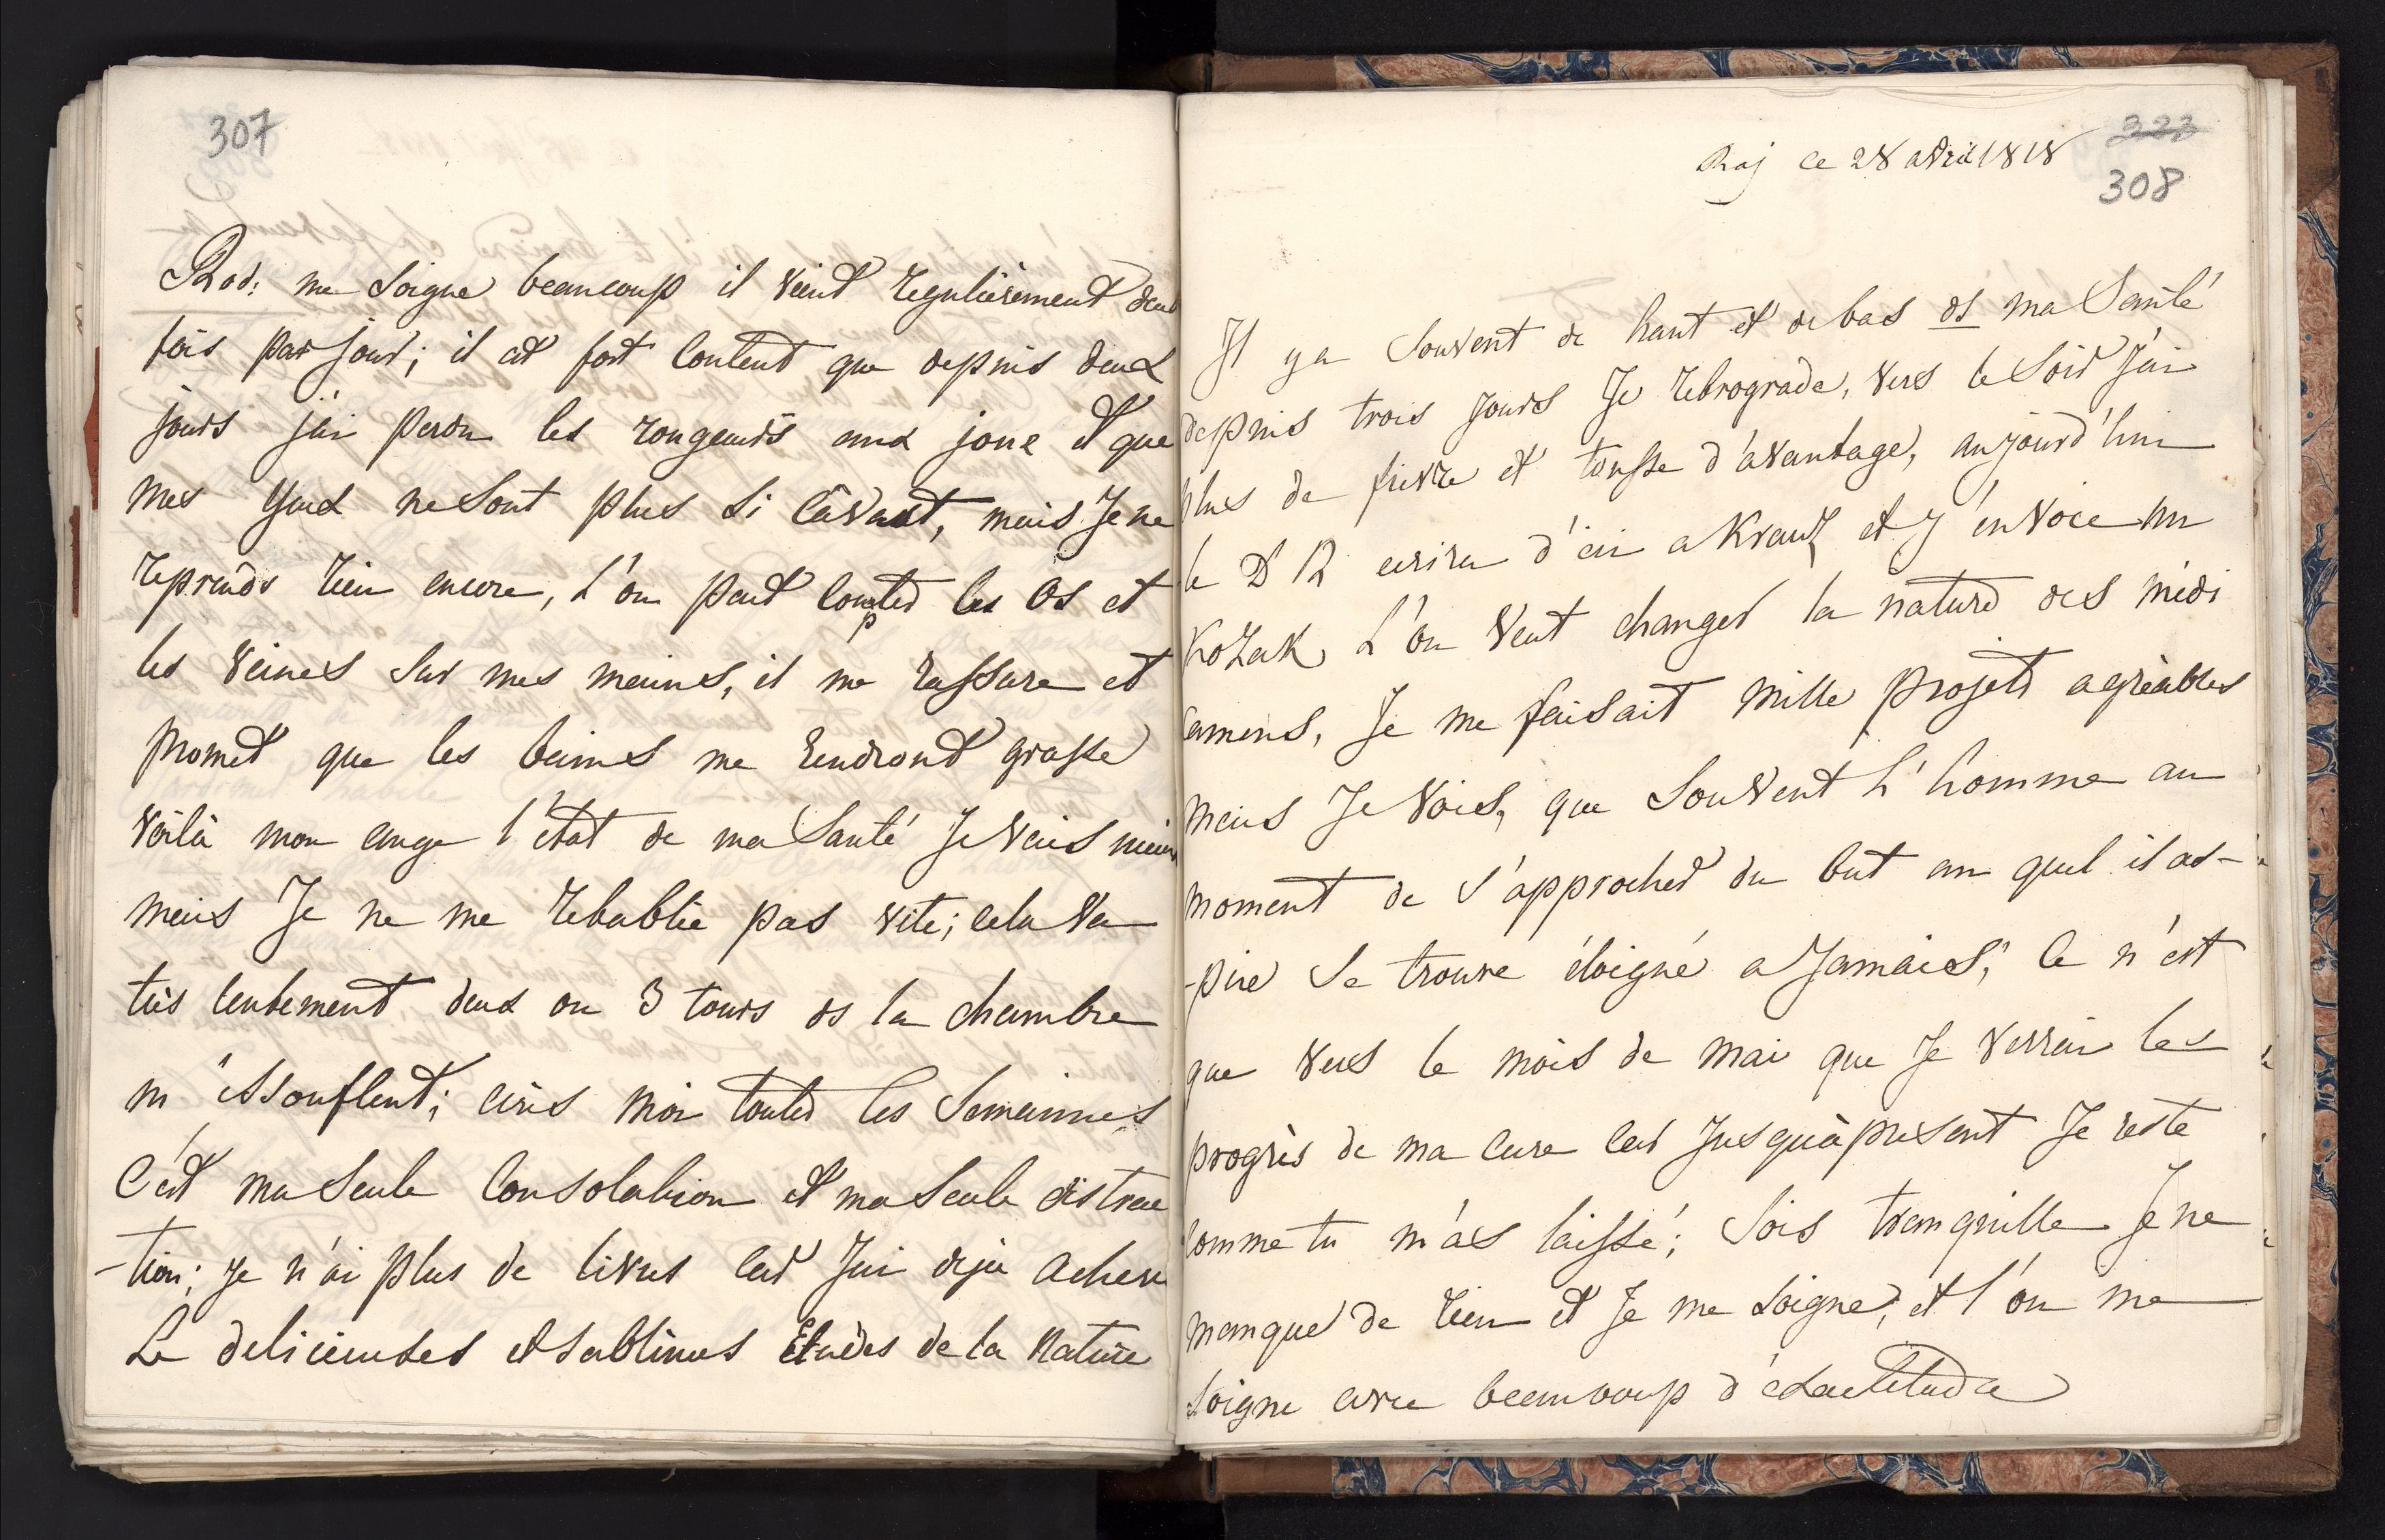 307
Rod: me soigne beaucoup il vient regulièrement deux
fois par jour; il est fort content que depuis deux
jours j'ai perdu les rougeurs aux joue et que
mes yeux ne sont plus si cavant, mais Je ne
reprends rien encore, L'on peut compter les os et
les veines sur mes mains, il me rassure et
promet que les bains me rendront grasse
voilà mon ange l'état de ma santé Je vais mieux
mais Je ne me retablie pas vite; cela va
très lentement deux ou 3 tours ds la chambre
m'essouflent; ecris moi toutes les semaines
C'est ma seule consolation et ma seule distrac
-tion; je n'ai plus de livres car J'ai deja acheve
Le delicieuses et sublimes Etudes de la Nature
323
Raj ce 28 avril 1818
308
Il y a souvent de haut et de bas ds ma Santé
depuis trois jours Je retrograde, vers le soir J'ai
plus de fievre et tousse d'avantage, aujourd'hui
le D R ecrira d'ici a Krauz et j'envoie un
Kozak L'on veut changer la nature des médi
camens, Je me faisait mille projets agréables
mais Je vois, que souvent L'homme au
moment de s'approcher du but au quel il as-
-pire se trouve éloigné a Jamais; Ce n'est
que vers le mois de mai que Je verrai les
progrès de ma cure car Jusqu'à present Je reste
comme tu m'as laissé; Sois tranquille Je ne
manque de rien et Je me soigne, et l'on me
soigne avec beaucoup d'exactitude